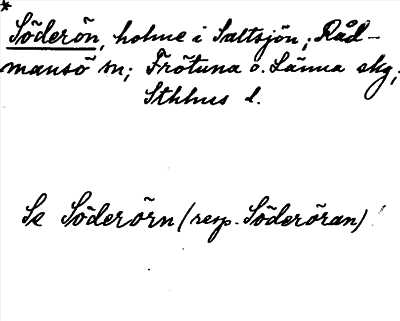 *
Söderön, holme i Saltsjön; Råd-
mansö sn; Frötuna o. Länna skg;
Sthlms l.
Se Söderörn (resp. Söderöran)